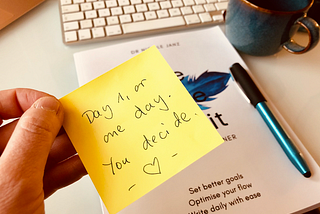 Day 1, or
one day.
You decide.
Set better goals
Optimise your flow
Write daily with ease